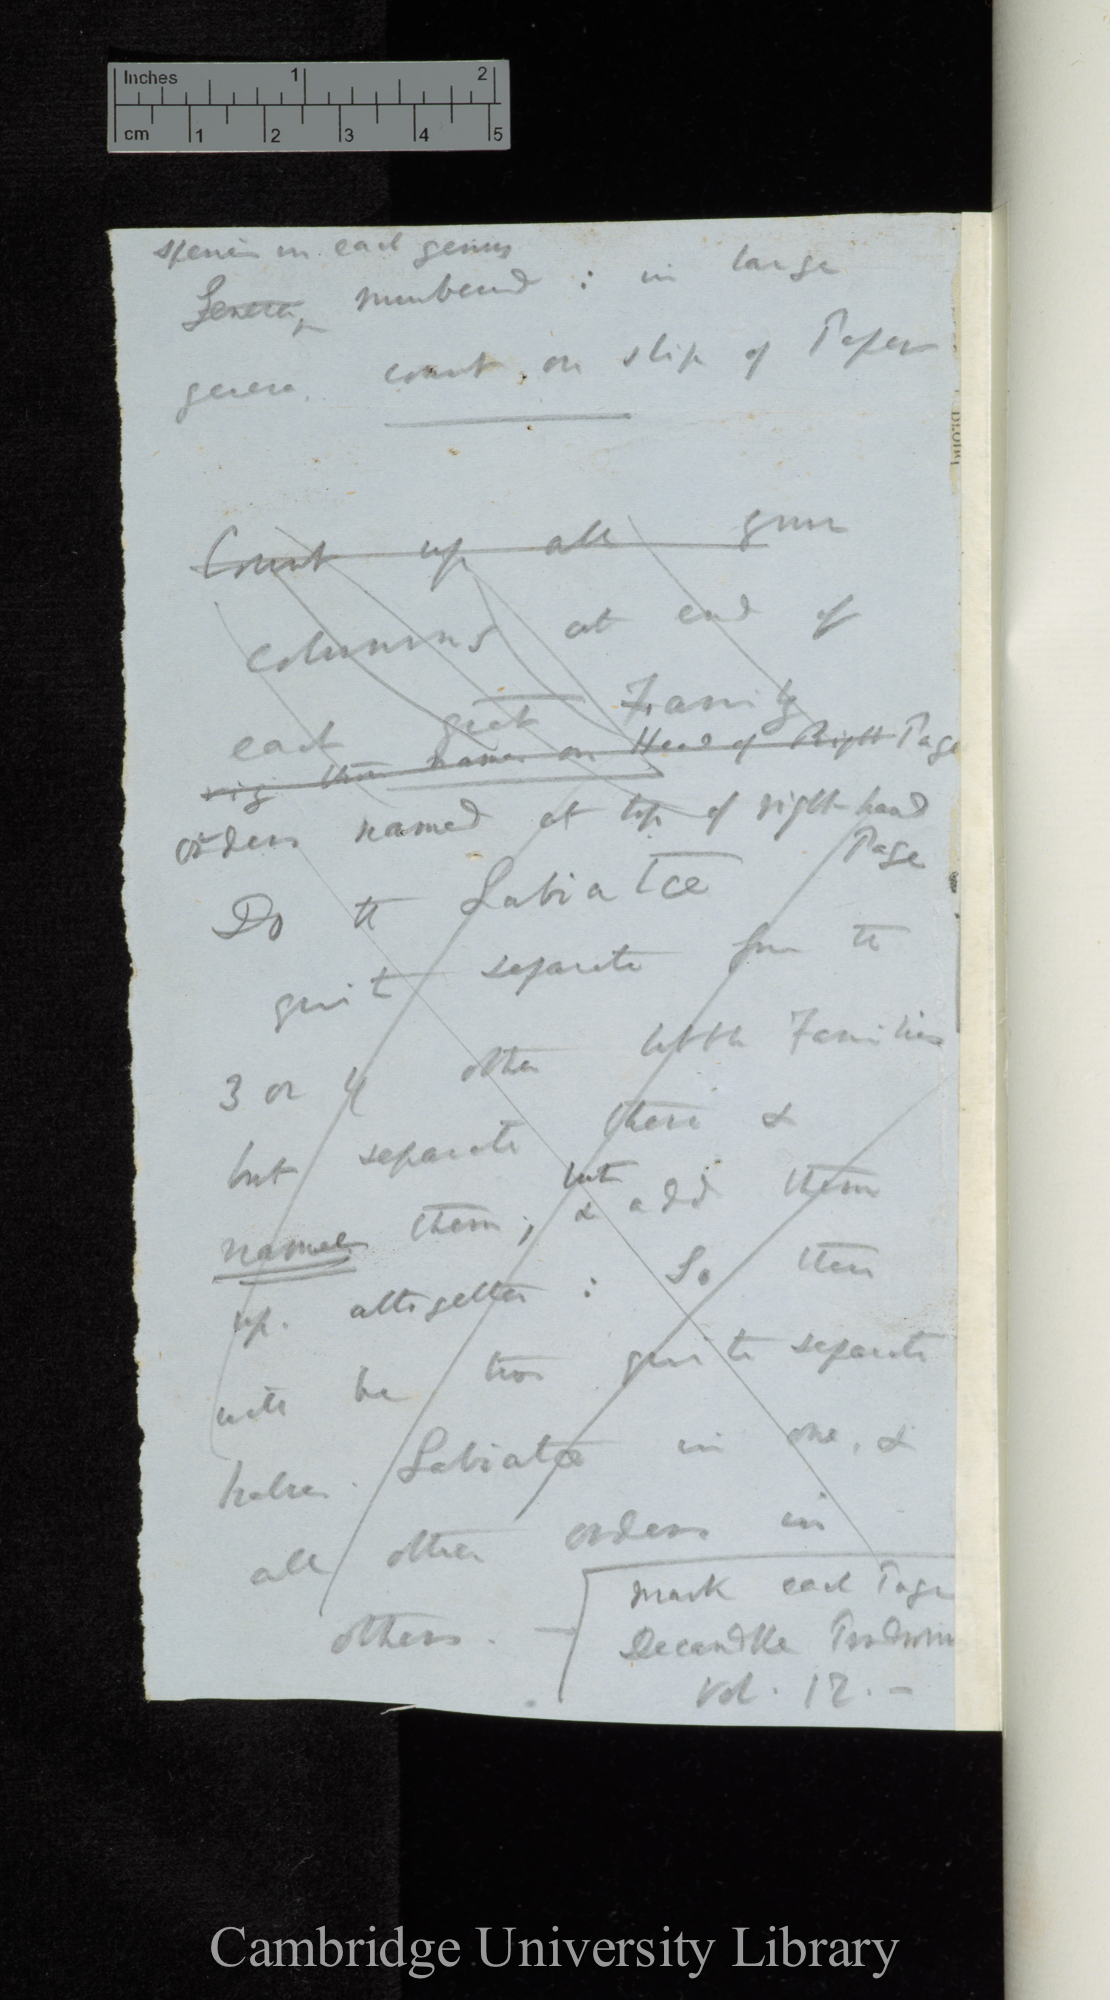 Inches 1 2
cm 1 2 3 4 5
species in each genus
Genera, numbered : in large
genera count on slip of Paper
Count up all
columns at end of
each great Family
names on Head of Right Page
orders named at top of right-hand
Page
Do the Labiatæ
quite separate from the
3 or 4 other little Families
but separate these &
names them; but
& add them
up. altogether : So there
will be two quite separate
halves. Labiatæ in one, &
all other orders in
others. —
Mark each Page
Decandolle Prodrom
Vol. 12. —
Cambridge University Library